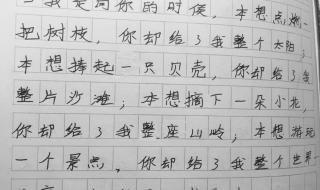 我是问你的时候，本想点燃一
把树枝，你却给了我整个太阳；
本想捧起一只贝壳，你却给了我
整片沙滩；本想摘下一朵小花，
你却给了我整座山岭；本想游玩
一个景点，你却给了我整个世界…